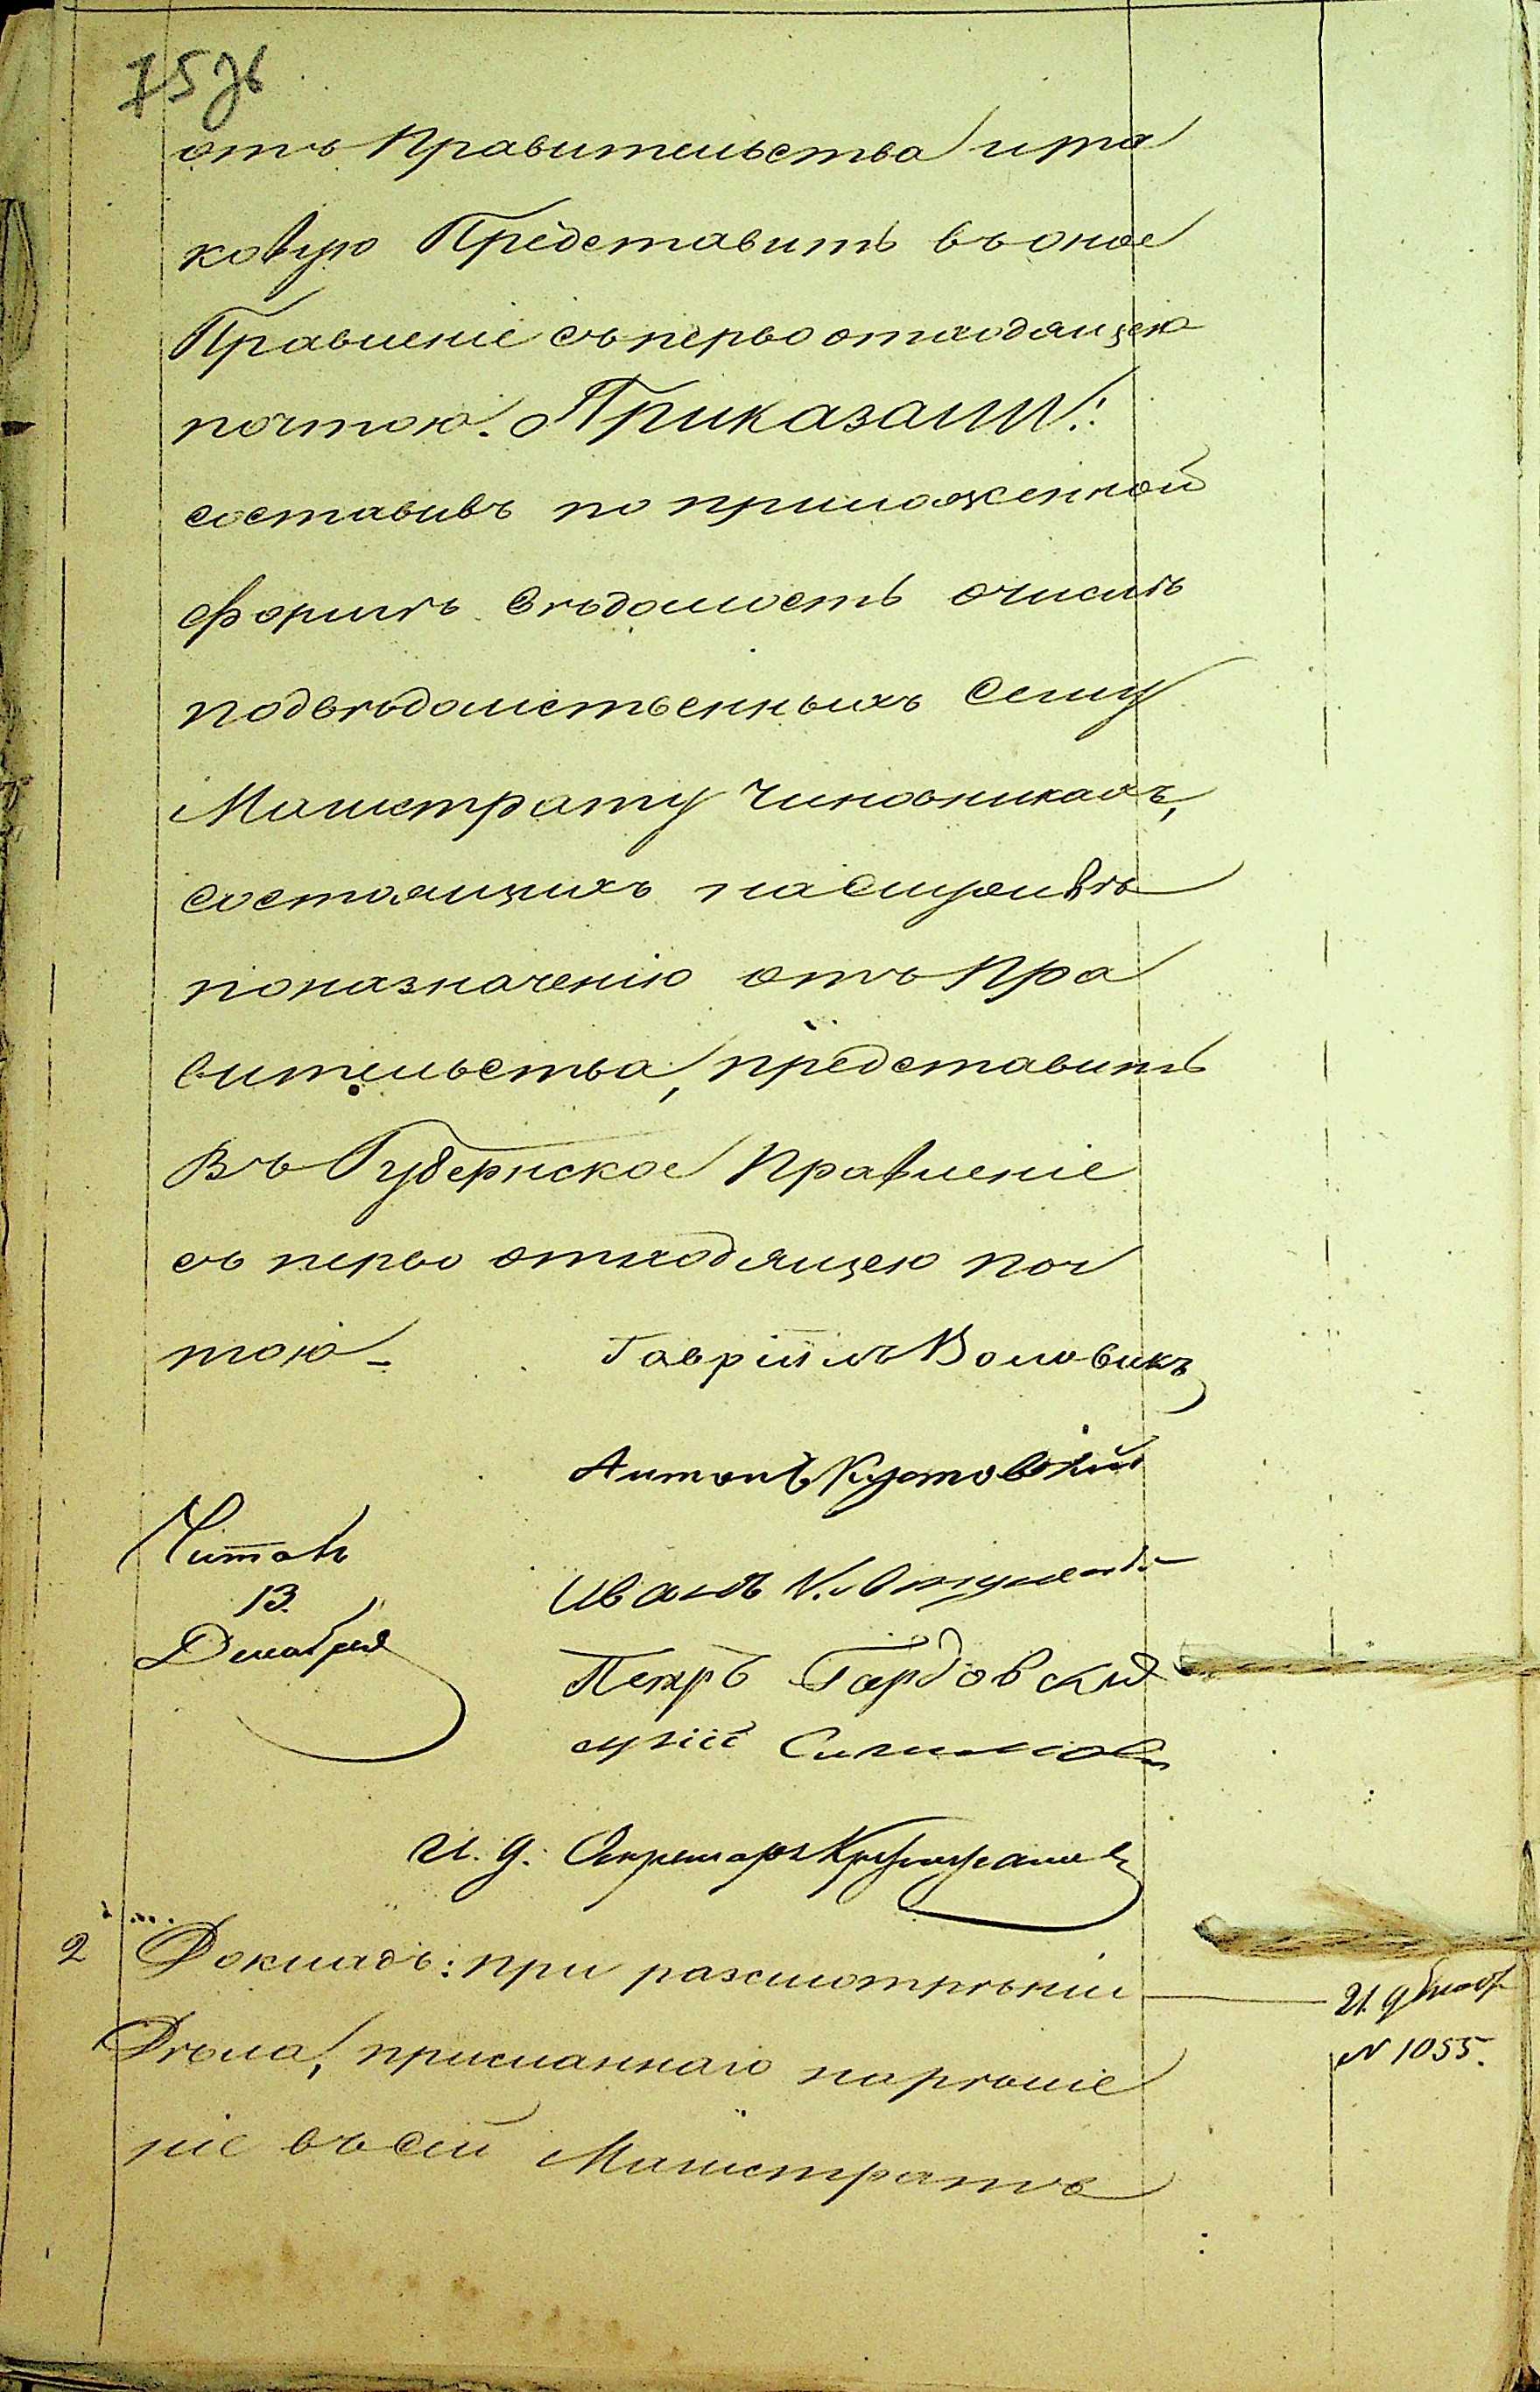 75 зв
отъ Правительства и та
ковую Представить въ оное
Правленіе съ перво отходящею
почтою. Приказали:
составивъ по приложенной
формѣ вѣдомость о числѣ
подвѣдомственныхъ сему
Магистрату Чиновникахъ,
состоящихъ на службѣ
по назначенію отъ Пра
вительства, представить
въ Губернское Правленіе
съ перво отходящею поч
тою.
Гавріилъ Воловикъ
Антонъ Кустовскій
Читалъ
13
Декабря
Иванъ
Петръ
И. д. Секретаря
2
Докладъ: при разсмотрѣніи
Дѣла, присланнаго на рѣше
ніе въ сей Магистратъ
21 декабр
N 1055.